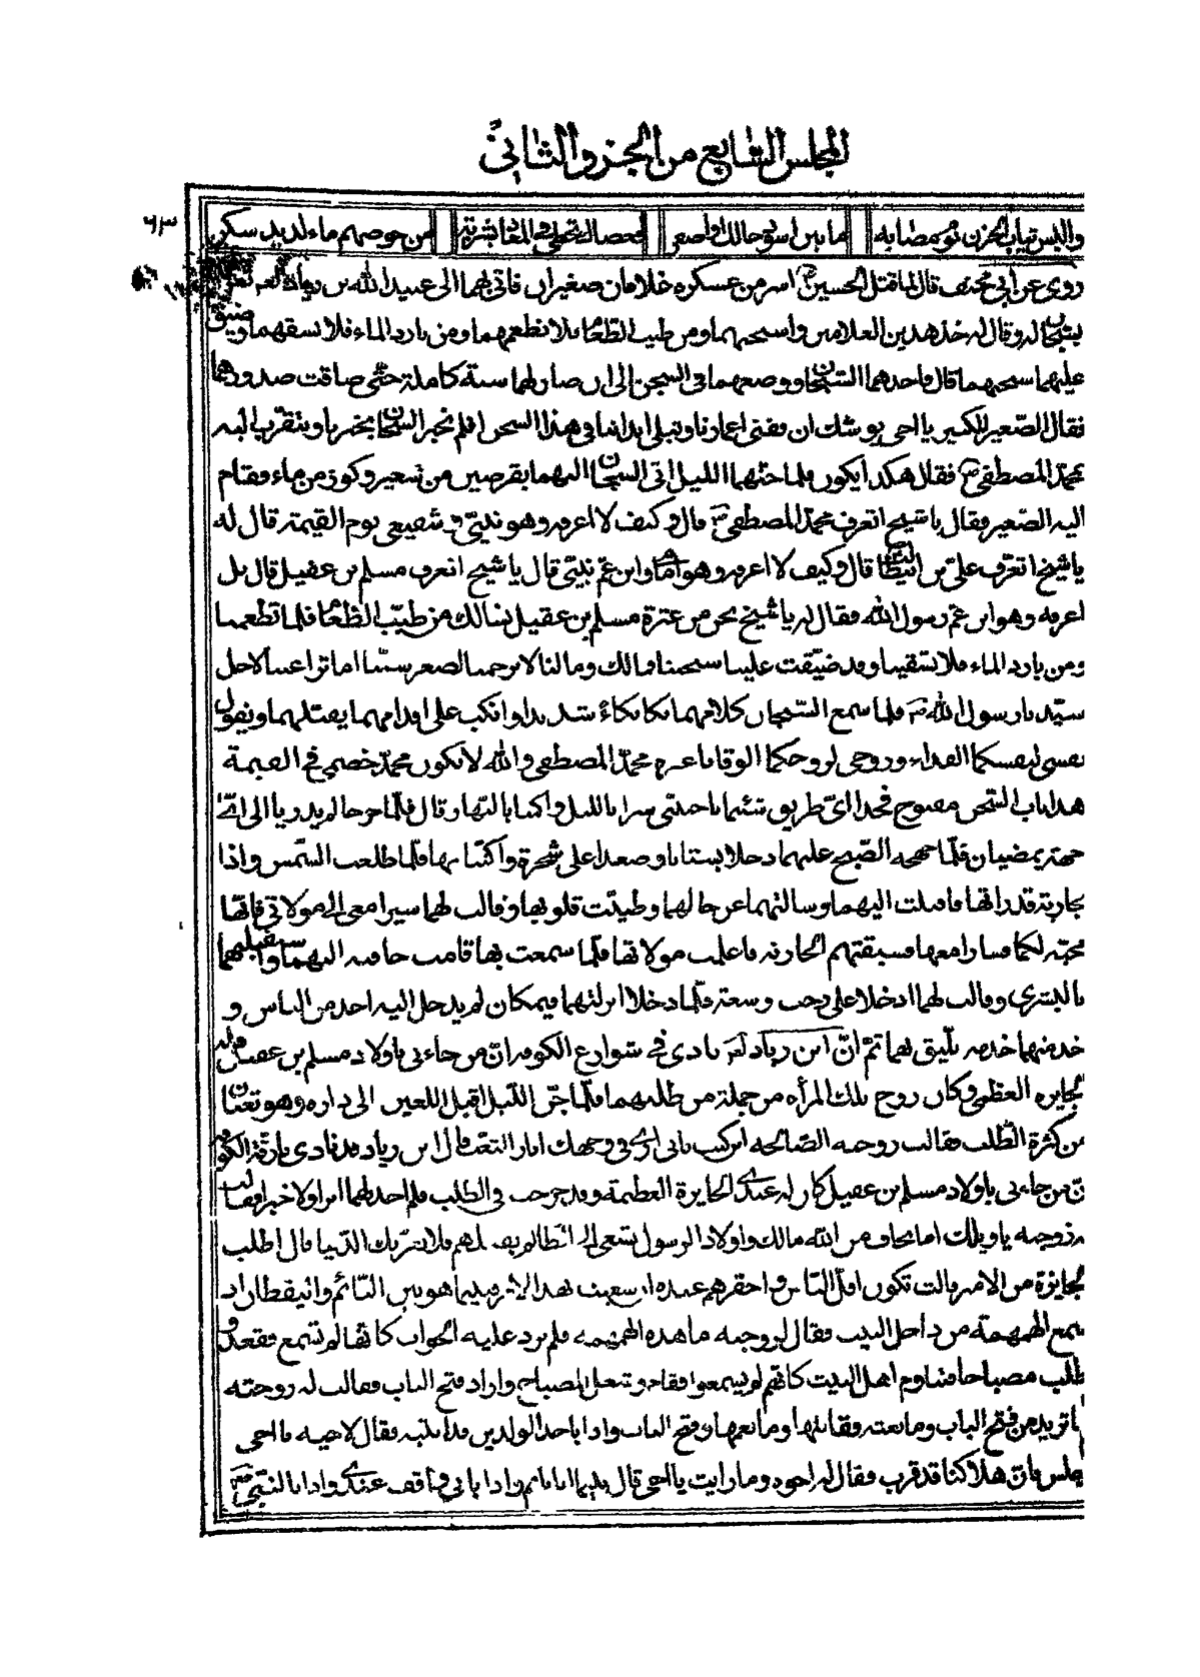 المجلس السابع من الجزو الثاني
٦٣
والبس ثياب الحزن ثوب مصابه ما بين اسود حالك او اصفر فعصابة في المعاد شربة من حوضهم ماء لذيذ سكر
روى عن ابي مخنف قال لما قتل الحسين ع اسر من عسكره غلامان صغيران فاتى بهما الى عبيد الله بن زياد لعم
بسجان له وقال له خذ هذين الغلامين واسجنهما ومن طيب الطعام فلا تطعمهما ومن بارد الماء فلا تسقهما وضيق
عليهما سجنهما قال فاخذهما السجان ووضعهما في السجن الى ان صار لهما سنة كاملة حتى ضاقت صدورهما
فقال الصغير للكبير يا اخي يوشك ان تفنى اعمارنا وتبلى ابداننا في هذا السجن افلم نخبر السجان بخبرنا ونتقرب اليه
بمحمد المصطفى ص فقال هكذا يكون فلما جنهما الليل اتى السجان اليهما بقرصين من شعير وكوز من ماء فقام
اليه الصغير فقال يا شيخ اتعرف محمد المصطفى ص قال وكيف لا اعرفه وهو نبيي وشفيعي يوم القيمة قال له
يا شيخ اتعرف علي بن ابيطالب قال وكيف لا اعرفه وهو امامي وابن عم نبيي قال يا شيخ اتعرف مسلم بن عقيل قال بل
اعرفه وهو ابن عم رسول الله فقال له يا شيخ نحن من عترة مسلم بن عقيل نسالك من طيب الطعام فلما تطعمنا
ومن بارد الماء فلا تسقينا وقد ضيقت علينا سجننا فما لك وما لنا لا ترحمنا لصغر سننا اما ترا عينا لاجل
سيدنا رسول الله ص فلما سمع السجان كلامهما بكا بكاء شديدا وانكب على اقدامهما يقبلهما ويقول
نفسي لنفسكما الفداء وروحي لروحكما الوقا يا عترة محمد المصطفى والله لا يكون محمد خصمي في القيمة
هذا باب السجن مفتوح فخذا اي طريق شئتما يا حبيبي سيرا بالليل واكمنا بالنهار قال فلما خرجا لم يدريا الى اي
جهة يمضيان فلما هجم الصبح عليهما دخلا بستانا وصعدا على شجرة واكتنا بها فلما طلعت الشمس واذا
بجارية قد راتهما فاقبلت اليهما وسالتهما عن حالهما وطيبت قلوبهما وقالت لهما سيرا معي الى مولاتي فانها
محبة لكما فسارا معها فسبقتهم الجارية فاعلمت مولاتها فلما سمعت بهما قامت حافية اليهما واستقبلتهما
بالبشرى وقالت لهما ادخلا على رحب وسعة فلما دخلا انزلتهما في مكان لم يدخل اليه احد من الناس و
خدمتهما خدمة تليق بهما ثم ان ابن زياد لعم نادى في شوارع الكوفة ان من جاءني باولاد مسلم بن عقيل فله
الجايزة العظمى وكان زوج تلك المرأه من جملة من طلبهما فلما جن الليل اقبل اللعين الى داره وهو تعبان
من كثرة الطلب فقالت زوجته الصالحه اين كنت فاني ارى في وجهك اثار التعب قال ان ابن زياد قد نادى بازقة الكوفة
ان من جاءني باولاد مسلم بن عقيل كان له عندي الجايزة العظيمة وقد خرجت في الطلب فلم اجد لهما اثرا ولا خبرا فقالت
له زوجته يا ويلك اما تخاف من الله مالك واولاد الرسول تسعى الى الظالم بقتلهم فلا تغرنك الدنيا قال اطلب
الجايزة من الامير قالت تكون اقل الناس واحقرهم عنده ان سعيت بهذا الامر فبينما هو بين النائم واليقظان اذ
سمع الهمهمة من داخل البيت فقال لزوجته ما هذه الهمهمه فلم ترد عليه الجواب كانها لم تسمع فقعد و
طلب مصباحا فتناوم اهل البيت كانهم لم يسمعوا فقام وشعل المصباح واراد فتح الباب فقالت له زوجته
ما تريد من فتح الباب ومانعته فقاتلها ومانعها وفتح الباب واذا باحد الولدين قد انتبه فقال لاخيه يا اخي
اجلس فان هلاكنا قد قرب فقال له اخوه وما رايت يا اخي قال بينما انا نائم واذا بابي واقف عندي واذا بالنبي ص